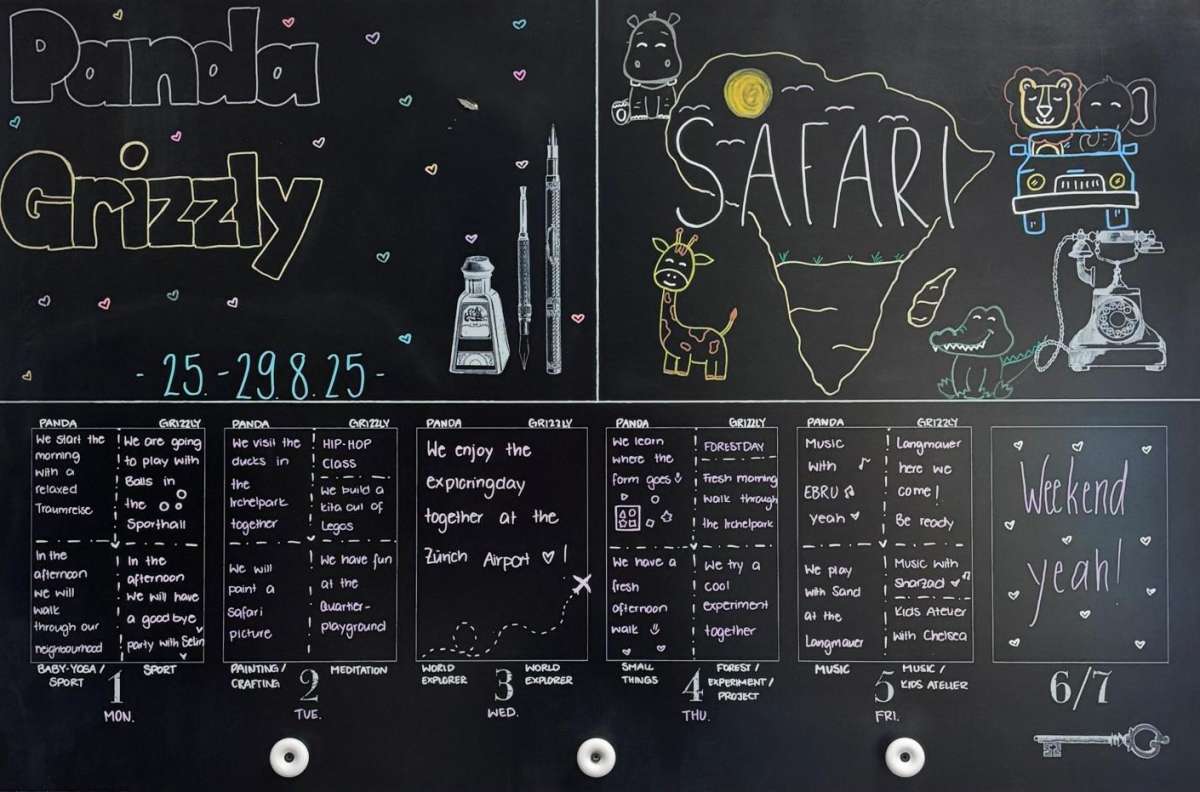 Panda
Grizzly
- 25.-29.8.25 -
SAFARI
PANDA
GRIZZLY
We start the
morning
with a
relaxed
Traumreise
We are going
to play with
Balls in
the
Sporthall
In the
afternoon
we will
walk
through our
neighbourhood
In the
afternoon
We will have
a good bye
party with Selin
BABY-YOGA/
SPORT
SPORT
1
MON.
PANDA
GRIZZLY
We visit the
ducks in
the
Irchelpark
together
HIP-HOP
CLASS
We build a
kita out of
Legos
We will
paint a
safari
picture
We have fun
at the
Quartier-
playground
PAINTING/
CRAFTING
MEDITATION
2
TUE.
PANDA
GRIZZLY
We enjoy the
exploringday
together at the
Zürich Airport !
WORLD
EXPLORER
WORLD
EXPLORER
3
WED.
PANDA
GRIZZLY
We learn
where the
form goes
FORESTDAY
Fresh morning
walk through
the Irchelpark
We have a
fresh
afternoon
walk
We try a
cool
experiment
together
SMALL
THINGS
FOREST/
EXPERIMENT/
PROJECT
4
THU.
PANDA
GRIZZLY
Music
with
EBRU
yeah
Langmauer
here we
come!
Be ready
We play
with Sand
at the
Langmauer
Music with
Sharzad
Kids Atelier
with Chelsea
MUSIC
MUSIC/
KIDS ATELIER
5
FRI.
Weekend
yeah!
6/7